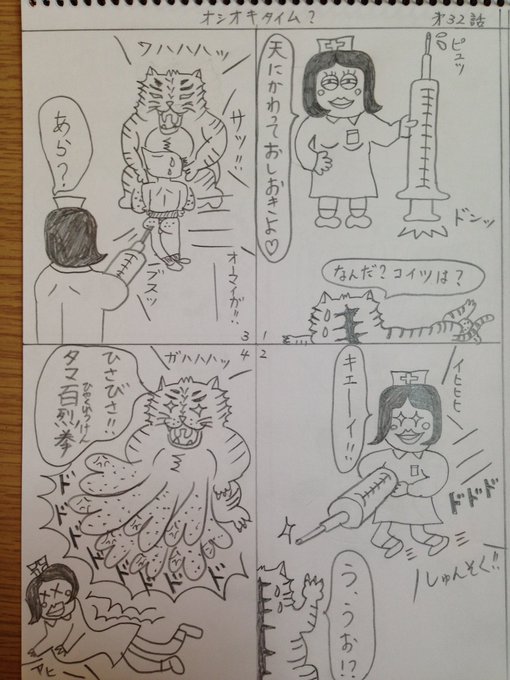 オシオキタイム? オ32話
ピュッ
天にかわっておしおきよ♡
ドンッ
なんだ?コイツは?
1
2
イヒヒヒ
キエーーイ!!
ドドド
しゅんそく!!
う、うお!?
ワハハハッ
サッ!!
あら?
ブスッ
オーマイガ!!
3
4
ガハハハッ
ひさびさ!!
タマ百烈拳
ひゃくれつけん
ドドドドドドドド
アヒ